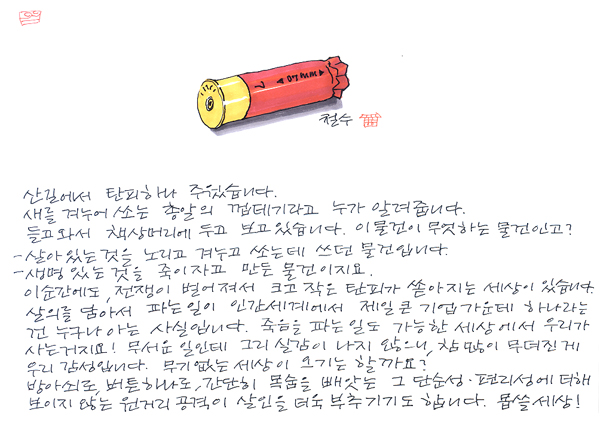 철수
산길에서 탄피하나 주웠습니다.
새를 겨누어 쏘는 총알의 껍데기라고 누가 알려줍니다.
들고와서 책상머리에 두고 보고있습니다. 이물건이 무엇하는 물건인고?
- 살아 있는것을 노리고 겨누고 쏘는데 쓰던 물건입니다.
- 생명 있는것을 죽이자고 만든 물건이지요.
이순간에도, 전쟁이 벌어져서 크고 작은 탄피가 쏟아지는 세상이 있습니다.
살의를 담아서 파는일이 인간세계에서 제일 큰 기업 가운데 하나라는
건 누구나 아는 사실입니다. 죽음을 파는 일도 가능한 세상에서 우리가
사는거지요! 무서운 일인데 그리 실감이 나지 않으니, 참 많이 무뎌진 게
우리 감성입니다. 무기없는 세상이 오기는 할까요?
방아쇠로, 버튼하나로, 간단히 목숨을 빼앗는 그 단순성·편리성에 더해
보이지 않는 원거리 공격이 살인을 더욱 부추기기도 합니다. 몹쓸세상!